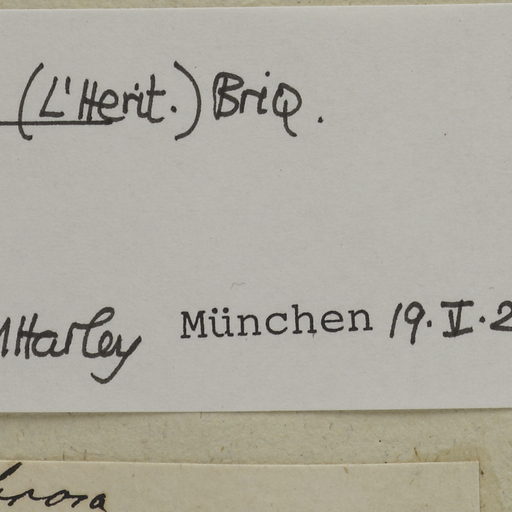 (L'Herit.) BriQ.
MHarley München 19. V. 2